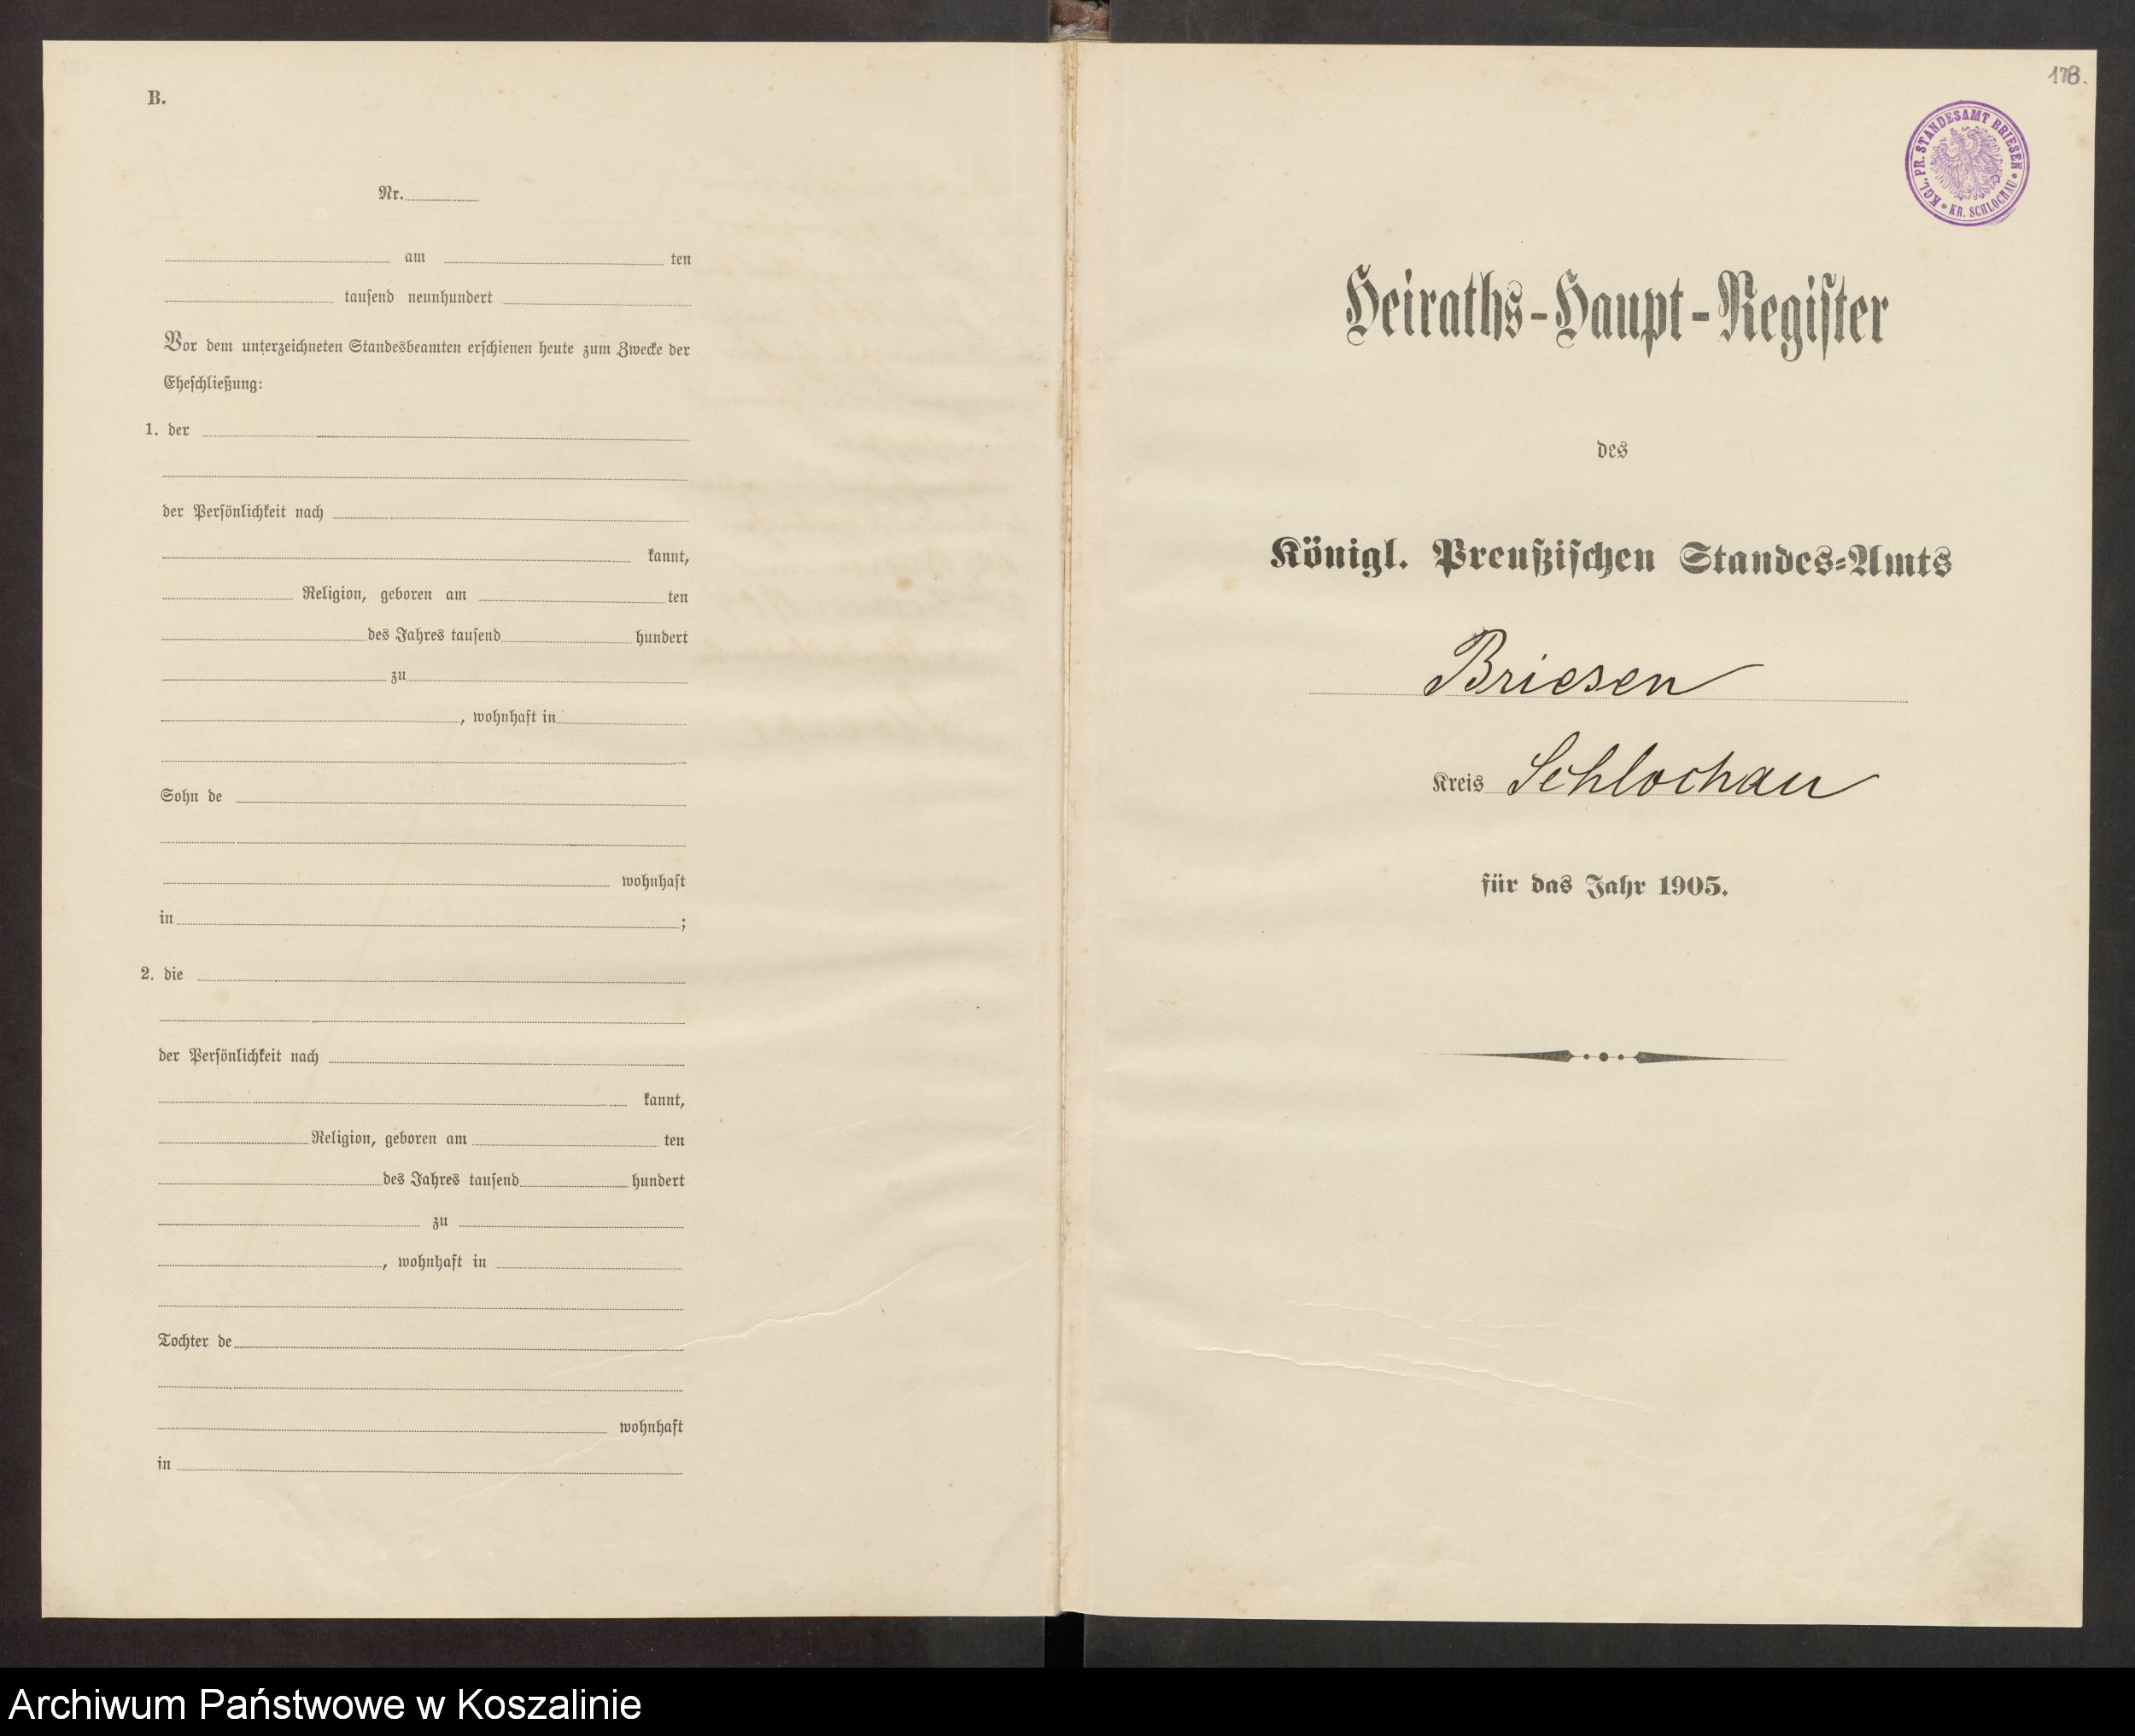 B.
Nr.
am ten
tausend neunhundert
Vor dem unterzeichneten Standesbeamten erschienen heute zum Zwecke der
Eheschließung:
1. der
der Persönlichkeit nach
kannt,
Religion, geboren am ten
des Jahres tausend hundert
zu
, wohnhaft in
Sohn de
wohnhaft
in ;
2. die
der Persönlichkeit nach
kannt,
Religion, geboren am ten
des Jahres tausend hundert
zu
, wohnhaft in
Tochter de
wohnhaft
in
178.
KGL. PR. STANDESAMT BRIESEN
* KR. SCHLOCHAU *
Heiraths-Haupt-Register
des
Königl. Preußischen Standes-Amts
Briesen
Kreis Schlochau
für das Jahr 1905.
Archiwum Państwowe w Koszalinie